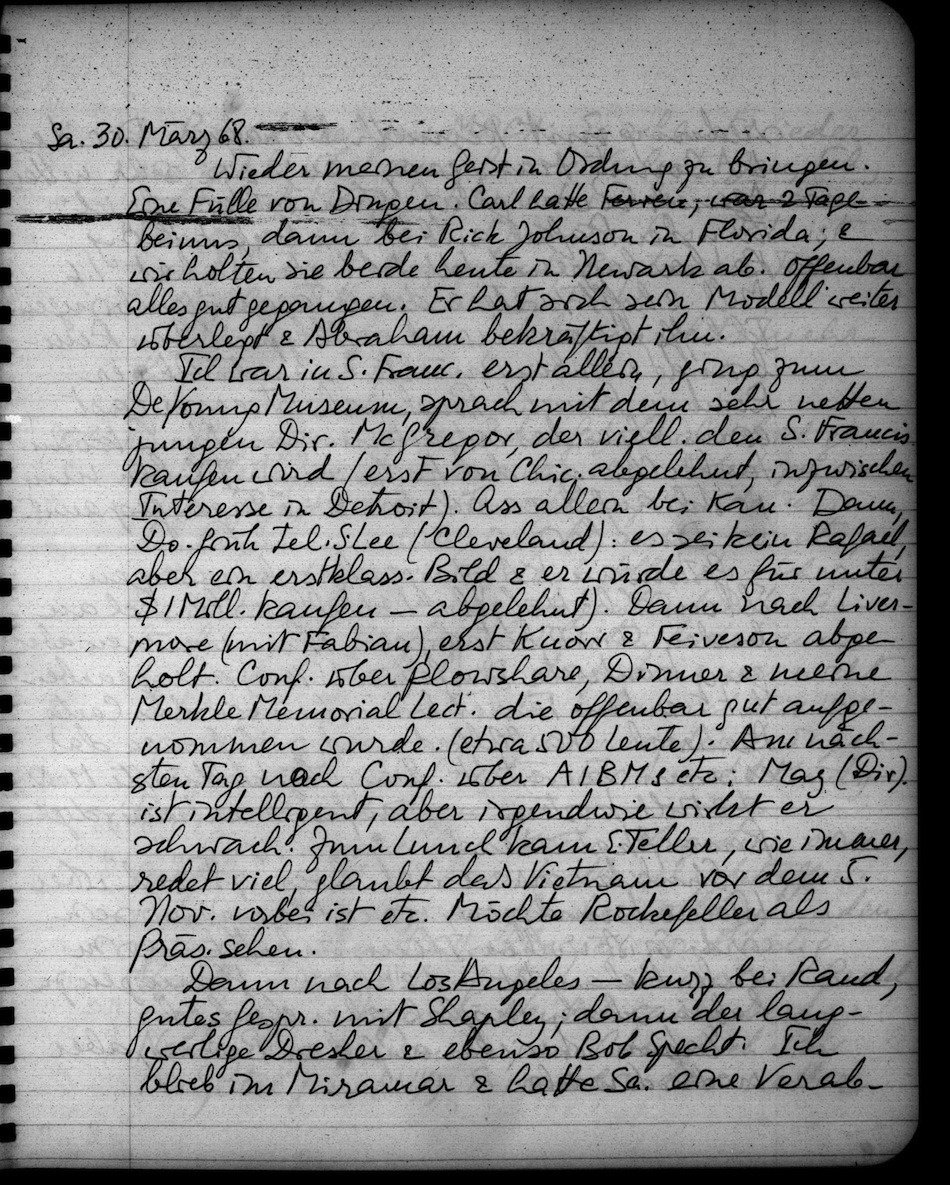 Sa. 30. März 68.
Wieder meinen Geist in Ordnung zu bringen.
Eine Fülle von Dingen. Carl hatte Ferien, war 2 Tage
bei uns, dann bei Rick Johnson in Florida; &
wir holten sie beide heute in Newark ab. Offenbar
alles gut gegangen. Er hat sich sein Modell weiter
überlegt & Abraham bekräftigt ihn.
Ich war in S. Franc. erst allein, ging zum
De Young Museum, sprach mit dem sehr netten
jungen Dir. McGregor, der viell. den S. Francis
kaufen wird (erst von Chic. abgelehnt, inzwischen
Interesse in Detroit). Ass allein bei Kan. Dann,
Do. früh Tel. S. Lee (Cleveland): es sei kein Rafael,
aber ein erstklass. Bild & er würde es für unter
$ 1 Mill. kaufen — abgelehnt). Dann nach Liver-
more (mit Fabian), erst Knorr & Feiveson abge-
holt. Conf. über Plowshare, Dinner & meine
Merkle Memorial Lect. die offenbar gut aufge-
nommen wurde. (etwa 500 Leute). Am näch-
sten Tag noch Conf. über AIBMs etc; May (Dir).
ist intelligent, aber irgendwie wirkt er
schwach. Zum Lunch kam E. Teller, wie immer,
redet viel, glaubt daß Vietnam vor dem 5.
Nov. vorbei ist etc. Möchte Rockefeller als
Präs. sehen.
Dann nach Los Angeles — kurz bei Rand,
gutes Gespr. mit Shapley; dann der lang-
weilige Dresher & ebenso Bob Specht. Ich
blieb im Miramar & hatte Sa. eine Verab-